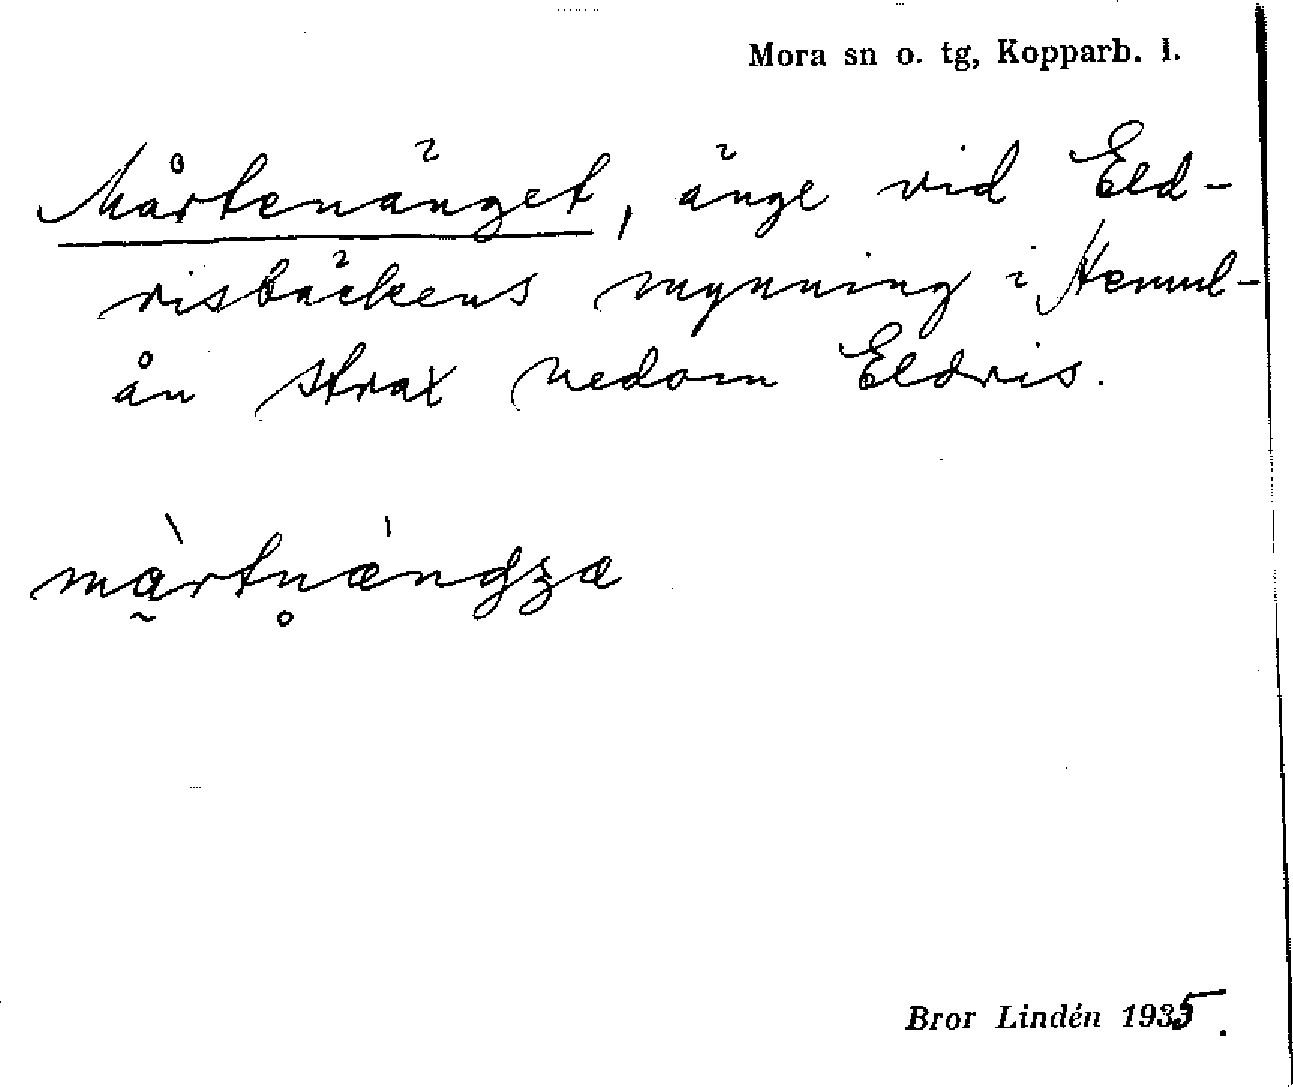 Mora sn o. tg, Kopparb. l.
Mårtenänget, änge vid Eld-
risbäckens mynning i Hemul-
ån strax nedom Eldris.
mà̰rtn̥ǽngʒæ
Bror Lindén 1935.